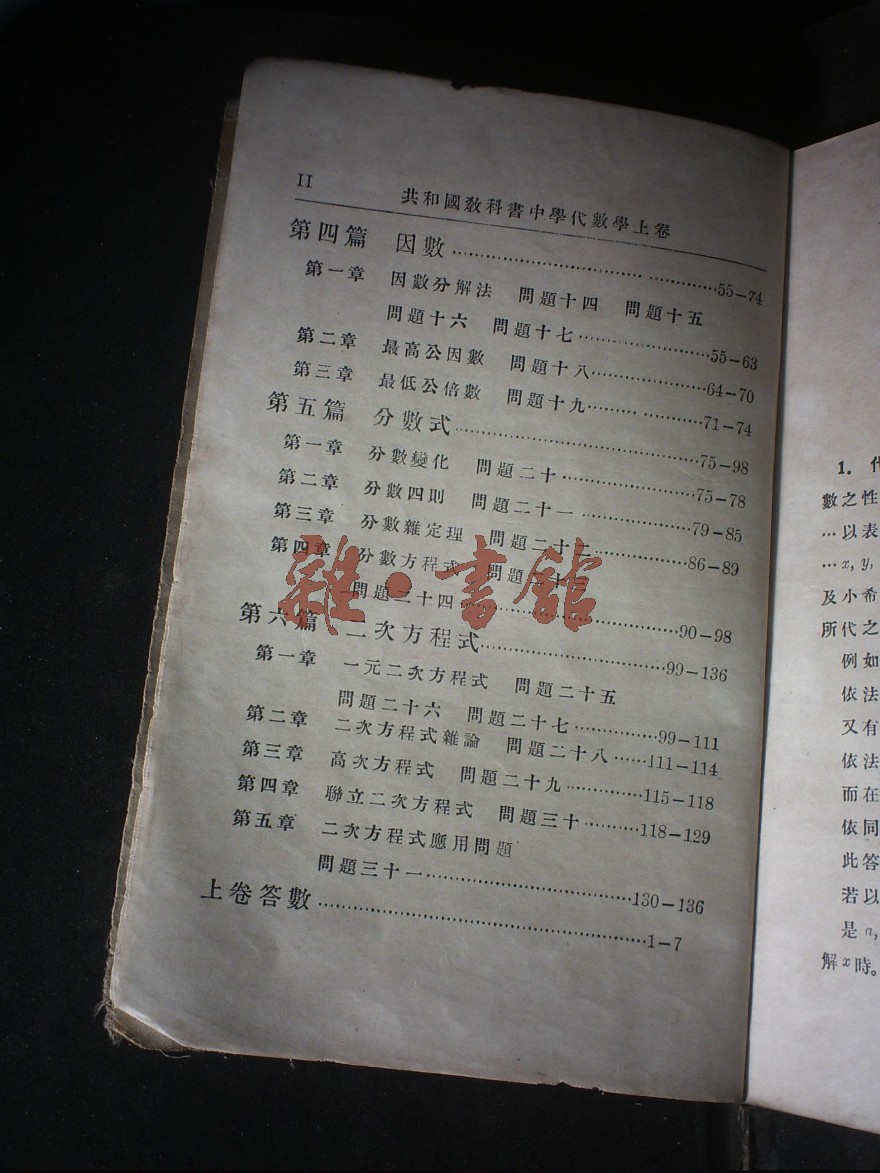 II 共和國敎科書中學代數學上卷
第四篇 因數…………………………55-74
第一章 因數分解法 問題十四 問題十五
問題十六 問題十七………………55-63
第二章 最高公因數 問題十八……………64-70
第三章 最低公倍數 問題十九……………71-74
第五篇 分數式…………………………75-98
第一章 分數變化 問題二十………………75-78
第二章 分數四則 問題二十一……………79-85
第三章 分數雜定理 問題二十二…………86-89
第四章 分數方程式 問題二十三
問題二十四…………………………90-98
第六篇 二次方程式……………………99-136
第一章 一元二次方程式 問題二十五
問題二十六 問題二十七…………99-111
第二章 二次方程式雜論 問題二十八……111-114
第三章 高次方程式 問題二十九…………115-118
第四章 聯立二次方程式 問題三十………118-129
第五章 二次方程式應用問題
問題三十一…………………………130-136
上卷答數…………………………………1-7
雜·書館
1. 代
數之性
…以表
…x, y,
及小希
所代之
例如
依法
又有
依法
而在
依同
此答
若以
是a,
解x時。